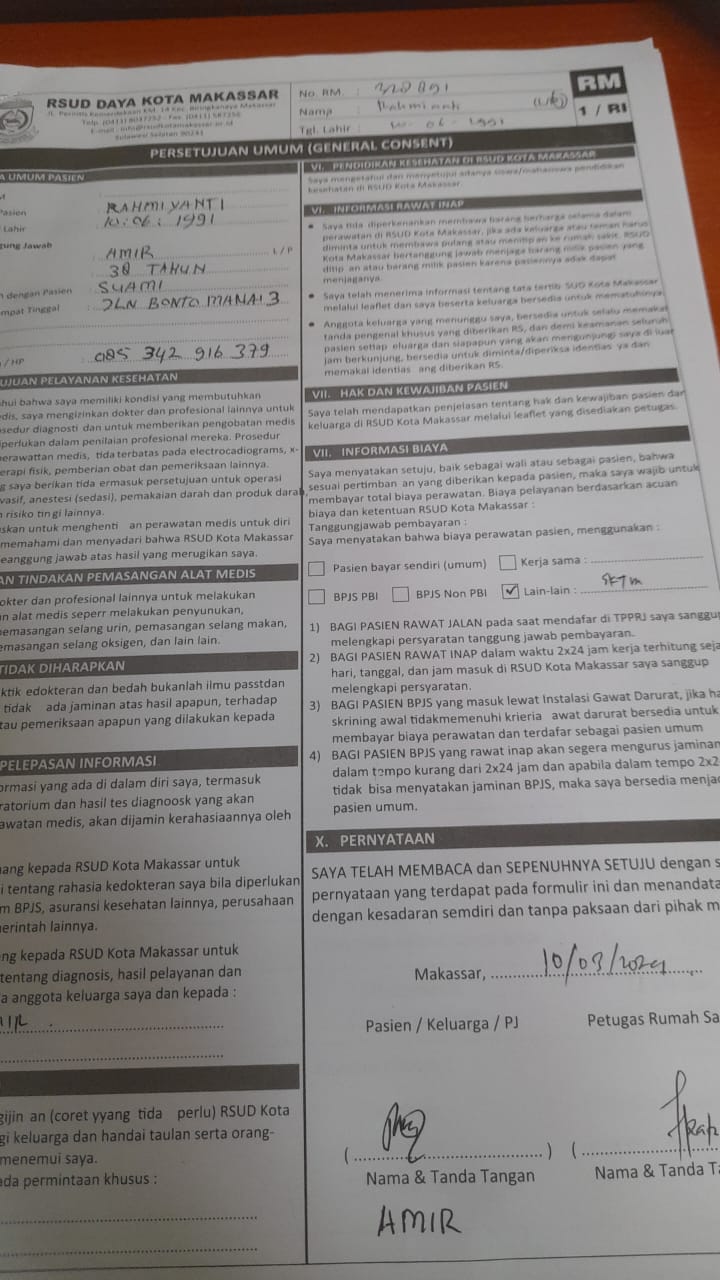 RSUD DAYA KOTA MAKASSAR
Jl. Perintis Kemerdekaan KM. 14 Kec. Biringkanaya Makassar
Sulawesi Selatan 90241
No. RM. :
Nama :
Tgl. Lahir : 10 - 06 - 1991
RM
1 / RI
PERSETUJUAN UMUM (GENERAL CONSENT)
A UMUM PASIEN
Pasien : RAHMIYANTI
Lahir : 10 : 06 : 1991
gung Jawab : AMIR L / P
38 TAHUN
n dengan Pasien : SUAMI
mpat Tinggal : JLN BONTO MANAI 3
/ HP : 085 342 916 379
UJUAN PELAYANAN KESEHATAN
hui bahwa saya memiliki kondisi yang membutuhkan
dis, saya mengizinkan dokter dan profesional lainnya untuk
sedur diagnosti dan untuk memberikan pengobatan medis
iperlukan dalam penilaian profesional mereka. Prosedur
erawattan medis, tida terbatas pada electrocadiograms, x-
erapi fisik, pemberian obat dan pemeriksaan lainnya.
g saya berikan tida ermasuk persetujuan untuk operasi
vasif, anestesi (sedasi), pemakaian darah dan produk darah,
n risiko tin gi lainnya.
skan untuk menghenti an perawatan medis untuk diri
memahami dan menyadari bahwa RSUD Kota Makassar
eanggung jawab atas hasil yang merugikan saya.
AN TINDAKAN PEMASANGAN ALAT MEDIS
okter dan profesional lainnya untuk melakukan
an alat medis seperr melakukan penyunukan,
pemasangan selang urin, pemasangan selang makan,
emasangan selang oksigen, dan lain lain.
TIDAK DIHARAPKAN
ktik edokteran dan bedah bukanlah ilmu passtdan
tidak ada jaminan atas hasil apapun, terhadap
tau pemeriksaan apapun yang dilakukan kepada
PELEPASAN INFORMASI
ormasi yang ada di dalam diri saya, termasuk
ratorium dan hasil tes diagnoosk yang akan
awatan medis, akan dijamin kerahasiaannya oleh
nang kepada RSUD Kota Makassar untuk
i tentang rahasia kedokteran saya bila diperlukan
m BPJS, asuransi kesehatan lainnya, perusahaan
nerintah lainnya.
ng kepada RSUD Kota Makassar untuk
tentang diagnosis, hasil pelayanan dan
a anggota keluarga saya dan kepada :
gijin an (coret yyang tida perlu) RSUD Kota
gi keluarga dan handai taulan serta orang-
menemui saya.
ada permintaan khusus :
VI. PENDIDIKAN KESEHATAN DI RSUD KOTA MAKASSAR
Saya mengetahui dan menyetujui adanya siswa/mahasiswa pendidikan
kesehatan di RSUD Kota Makassar.
VI. INFORMASI RAWAT INAP
• Saya tidak diperkenankan membawa barang berharga selama dalam
perawatan di RSUD Kota Makassar, jika ada keluarga atau teman harus
diminta untuk membawa pulang atau menitip ke rumah sakit. RSUD
Kota Makassar bertanggung jawab menjaga barang milik pasien yang
ditip an atau barang milik pasien karena pasiennya adak dapat
menjaganya.
• Saya telah menerima informasi tentang tata tertib SUD Kota Makassar
melalui leaflet dan saya beserta keluarga bersedia untuk mematuhinya
• Anggota keluarga yang menunggu saya, bersedia untuk selalu memakai
tanda pengenal khusus yang diberikan RS, dan demi keamanan seluruh
pasien setiap eluarga dan siapapun yang akan mengunjungi saya di luar
jam berkunjung, bersedia untuk diminta/diperiksa identias ya dan
memakai identias ang diberikan RS.
VII. HAK DAN KEWAJIBAN PASIEN
Saya telah mendapatkan penjelasan tentang hak dan kewajiban pasien dan
keluarga di RSUD Kota Makassar melalui leaflet yang disediakan petugas.
VII. INFORMASI BIAYA
Saya menyatakan setuju, baik sebagai wali atau sebagai pasien, bahwa
sesuai pertimban an yang diberikan kepada pasien, maka saya wajib untuk
membayar total biaya perawatan. Biaya pelayanan berdasarkan acuan
biaya dan ketentuan RSUD Kota Makassar :
Tanggungjawab pembayaran :
Saya menyatakan bahwa biaya perawatan pasien, menggunakan :
Pasien bayar sendiri (umum) Kerja sama :
BPJS PBI BPJS Non PBI ✓ Lain-lain : SKTM
1) BAGI PASIEN RAWAT JALAN pada saat mendafar di TPPRJ saya sanggup
melengkapi persyaratan tanggung jawab pembayaran.
2) BAGI PASIEN RAWAT INAP dalam waktu 2x24 jam kerja terhitung seja
hari, tanggal, dan jam masuk di RSUD Kota Makassar saya sanggup
melengkapi persyaratan.
3) BAGI PASIEN BPJS yang masuk lewat Instalasi Gawat Darurat, jika ha
skrining awal tidakmemenuhi krieria awat darurat bersedia untuk
membayar biaya perawatan dan terdafar sebagai pasien umum
4) BAGI PASIEN BPJS yang rawat inap akan segera mengurus jaminan
dalam tempo kurang dari 2x24 jam dan apabila dalam tempo 2x2
tidak bisa menyatakan jaminan BPJS, maka saya bersedia menja
pasien umum.
X. PERNYATAAN
SAYA TELAH MEMBACA dan SEPENUHNYA SETUJU dengan s
pernyataan yang terdapat pada formulir ini dan menandata
dengan kesadaran semdiri dan tanpa paksaan dari pihak m
Makassar, 10/03/2024
Pasien / Keluarga / PJ Petugas Rumah Sa
( ) (
Nama & Tanda Tangan Nama & Tanda Ta
AMIR